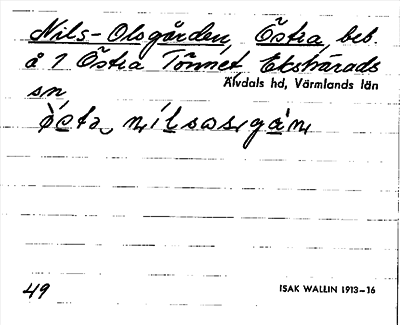 Nils-Olsgården, Östra, beb.
å 7 Östra Tönnet, Ekshärads
sn
Älvdals hd, Värmlands län
49
ISAK WALLIN 1913–16